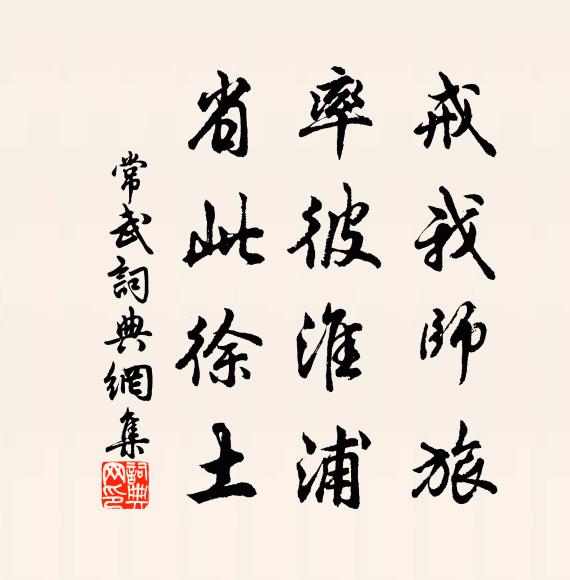 戒我師旅
率彼淮浦
省此徐土
常武詞典網集
詞典网印